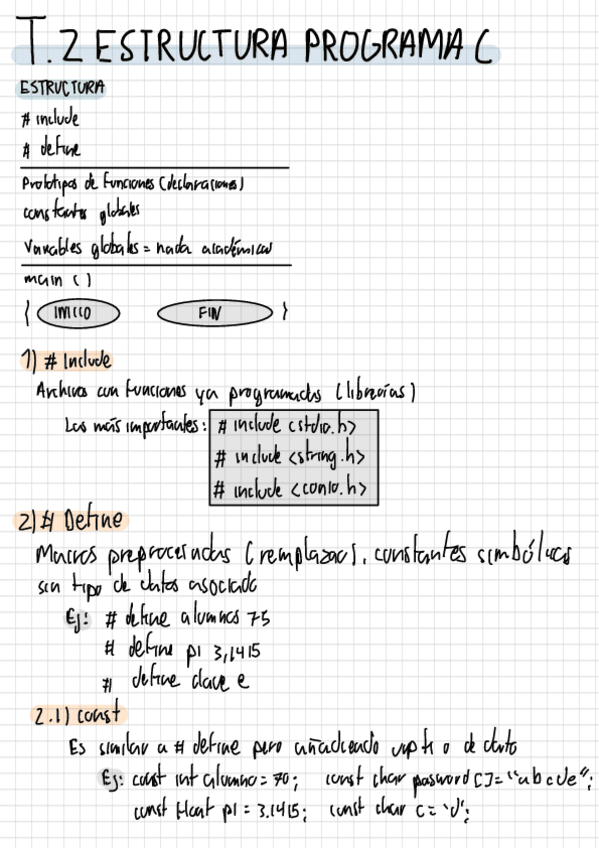 T.2 ESTRUCTURA PROGRAMA C
ESTRUCTURA
# include
# define
Prototipos de funciones (declaraciones)
constantes globales
Variables globales = nada académicas
main ()
{ INICIO FIN }
1) # Include
Archivos con funciones ya programadas (librerías)
Las más importantes: # include <stdio.h>
# include <string.h>
# include <conio.h>
2) # Define
Macros preprocesadas (remplazar), constantes simbólicas
sin tipo de datos asociado
Ej: # define alumnos 75
# define pi 3,1415
# define clave e
2.1) const
Es similar a # define pero añadiendo un tipo de dato
Ej: const int alumno = 70; const char pasword [] = "abcde";
const float pi = 3.1415; const char c = 'd';